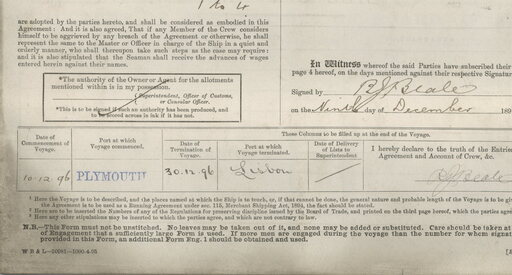 1 to 4
are adopted by the parties hereto, and shall be considered as embodied in this
Agreement: And it is also agreed, That if any Member of the Crew considers
himself to be aggrieved by any breach of the Agreement or otherwise, he shall
represent the same to the Master or Officer in charge of the Ship in a quiet and
orderly manner, who shall thereupon take such steps as the case may require:
and it is also stipulated that the Seaman shall receive the advances of wages
entered herein against their names.
*The authority of the Owner or Agent for the allotments
mentioned within is in my possession.
Superintendent, Officer of Customs,
or Consular Officer.
*This is to be signed if such an authority has been produced, and
to be scored across in ink if it has not.
In Witness whereof the said Parties have subscribed their
page 4 hereof, on the days mentioned against their respective Signatur
Signed by
on the Ninth day of December 189
These Columns to be filled up at the end of the Voyage.
Date of
Commencement of
Voyage.
Port at which
Voyage commenced.
Date of
Termination of
Voyage.
Port at which
Voyage terminated.
Date of
Delivery
of Lists to
Superintendent
I hereby declare to the truth of the Entries
Agreement and Account of Crew, &c.
10.12.96
PLYMOUTH
30.12.96
Lisbon
¹ Here the Voyage is to be described, and the places named at which the Ship is to touch, or, if that cannot be done, the general nature and probable length of the Voyage is to be
the Agreement is to be used as a Running Agreement under sec. 115, Merchant Shipping Act, 1894, the fact should be stated.
² Here are to be inserted the Numbers of any of the Regulations for preserving discipline issued by the Board of Trade, and printed on the third page hereof, which the parties agree
³ Here any other stipulations may be inserted to which the parties agree, and which are not contrary to law.
N.B.—This Form must not be unstitched. No leaves may be taken out of it, and none may be added or substituted. Care should be taken at
of Engagement that a sufficiently large Form is used. If more men are engaged during the voyage than the number for whom signat
provided in this Form, an additional Form Eng. 1 should be obtained and used.
W B & L